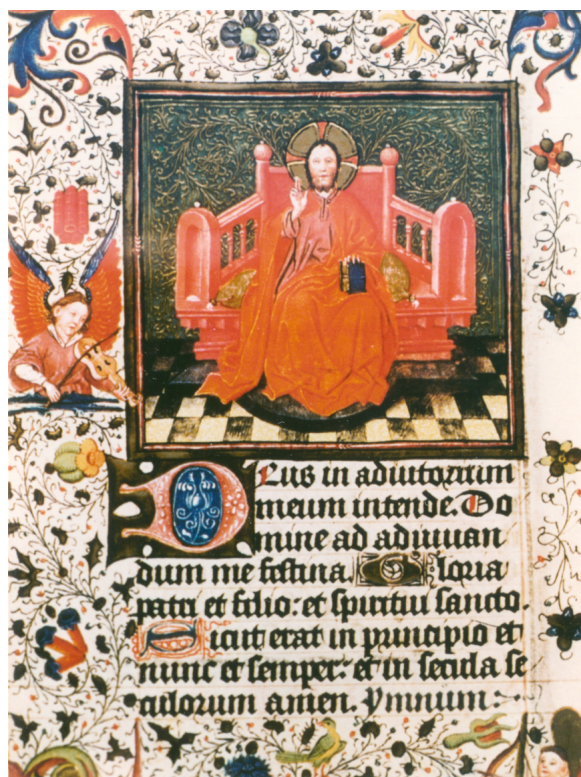 Deus in adiutorium
meum intende. Do
mine ad adiuuan
dum me festina. Gloria
patri et filio: et spiritui sancto.
Sicut erat in principio et
nunc et semper: et in secula se
culorum amen. Ymnum :~